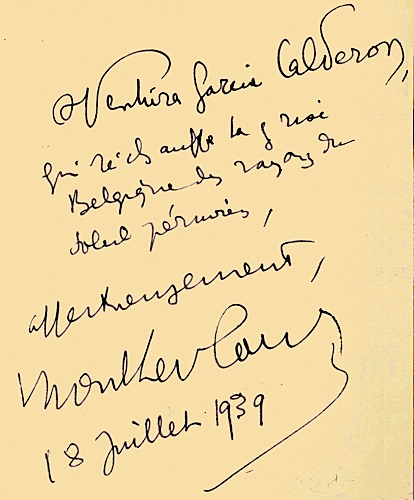 A Ventura Garcia Calderon,
qui réchauffe la
Belgique des rayons du
soleil péruvien,
affectueusement,
18 Juillet 1939